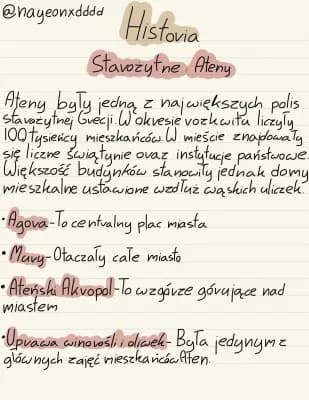 @nayeonxdddd
Historia
Starożytne Ateny
Ateny były jedną z największych polis
starożytnej Grecji. W okresie rozkwitu liczyły
100 tysięcy mieszkańców. W mieście znajdowały
się liczne świątynie oraz instytucje państwowe.
Większość budynków stanowiły jednak domy
mieszkalne ustawione wzdłuż wąskich uliczek.
• Agora - To centralny plac miasta
• Mury - Otaczały całe miasto
• Ateński Akropol - To wzgórze górujące nad
miastem
• Uprawa winorośli i oliwek - Była jedynym z
głównych zajęć mieszkańców Aten.